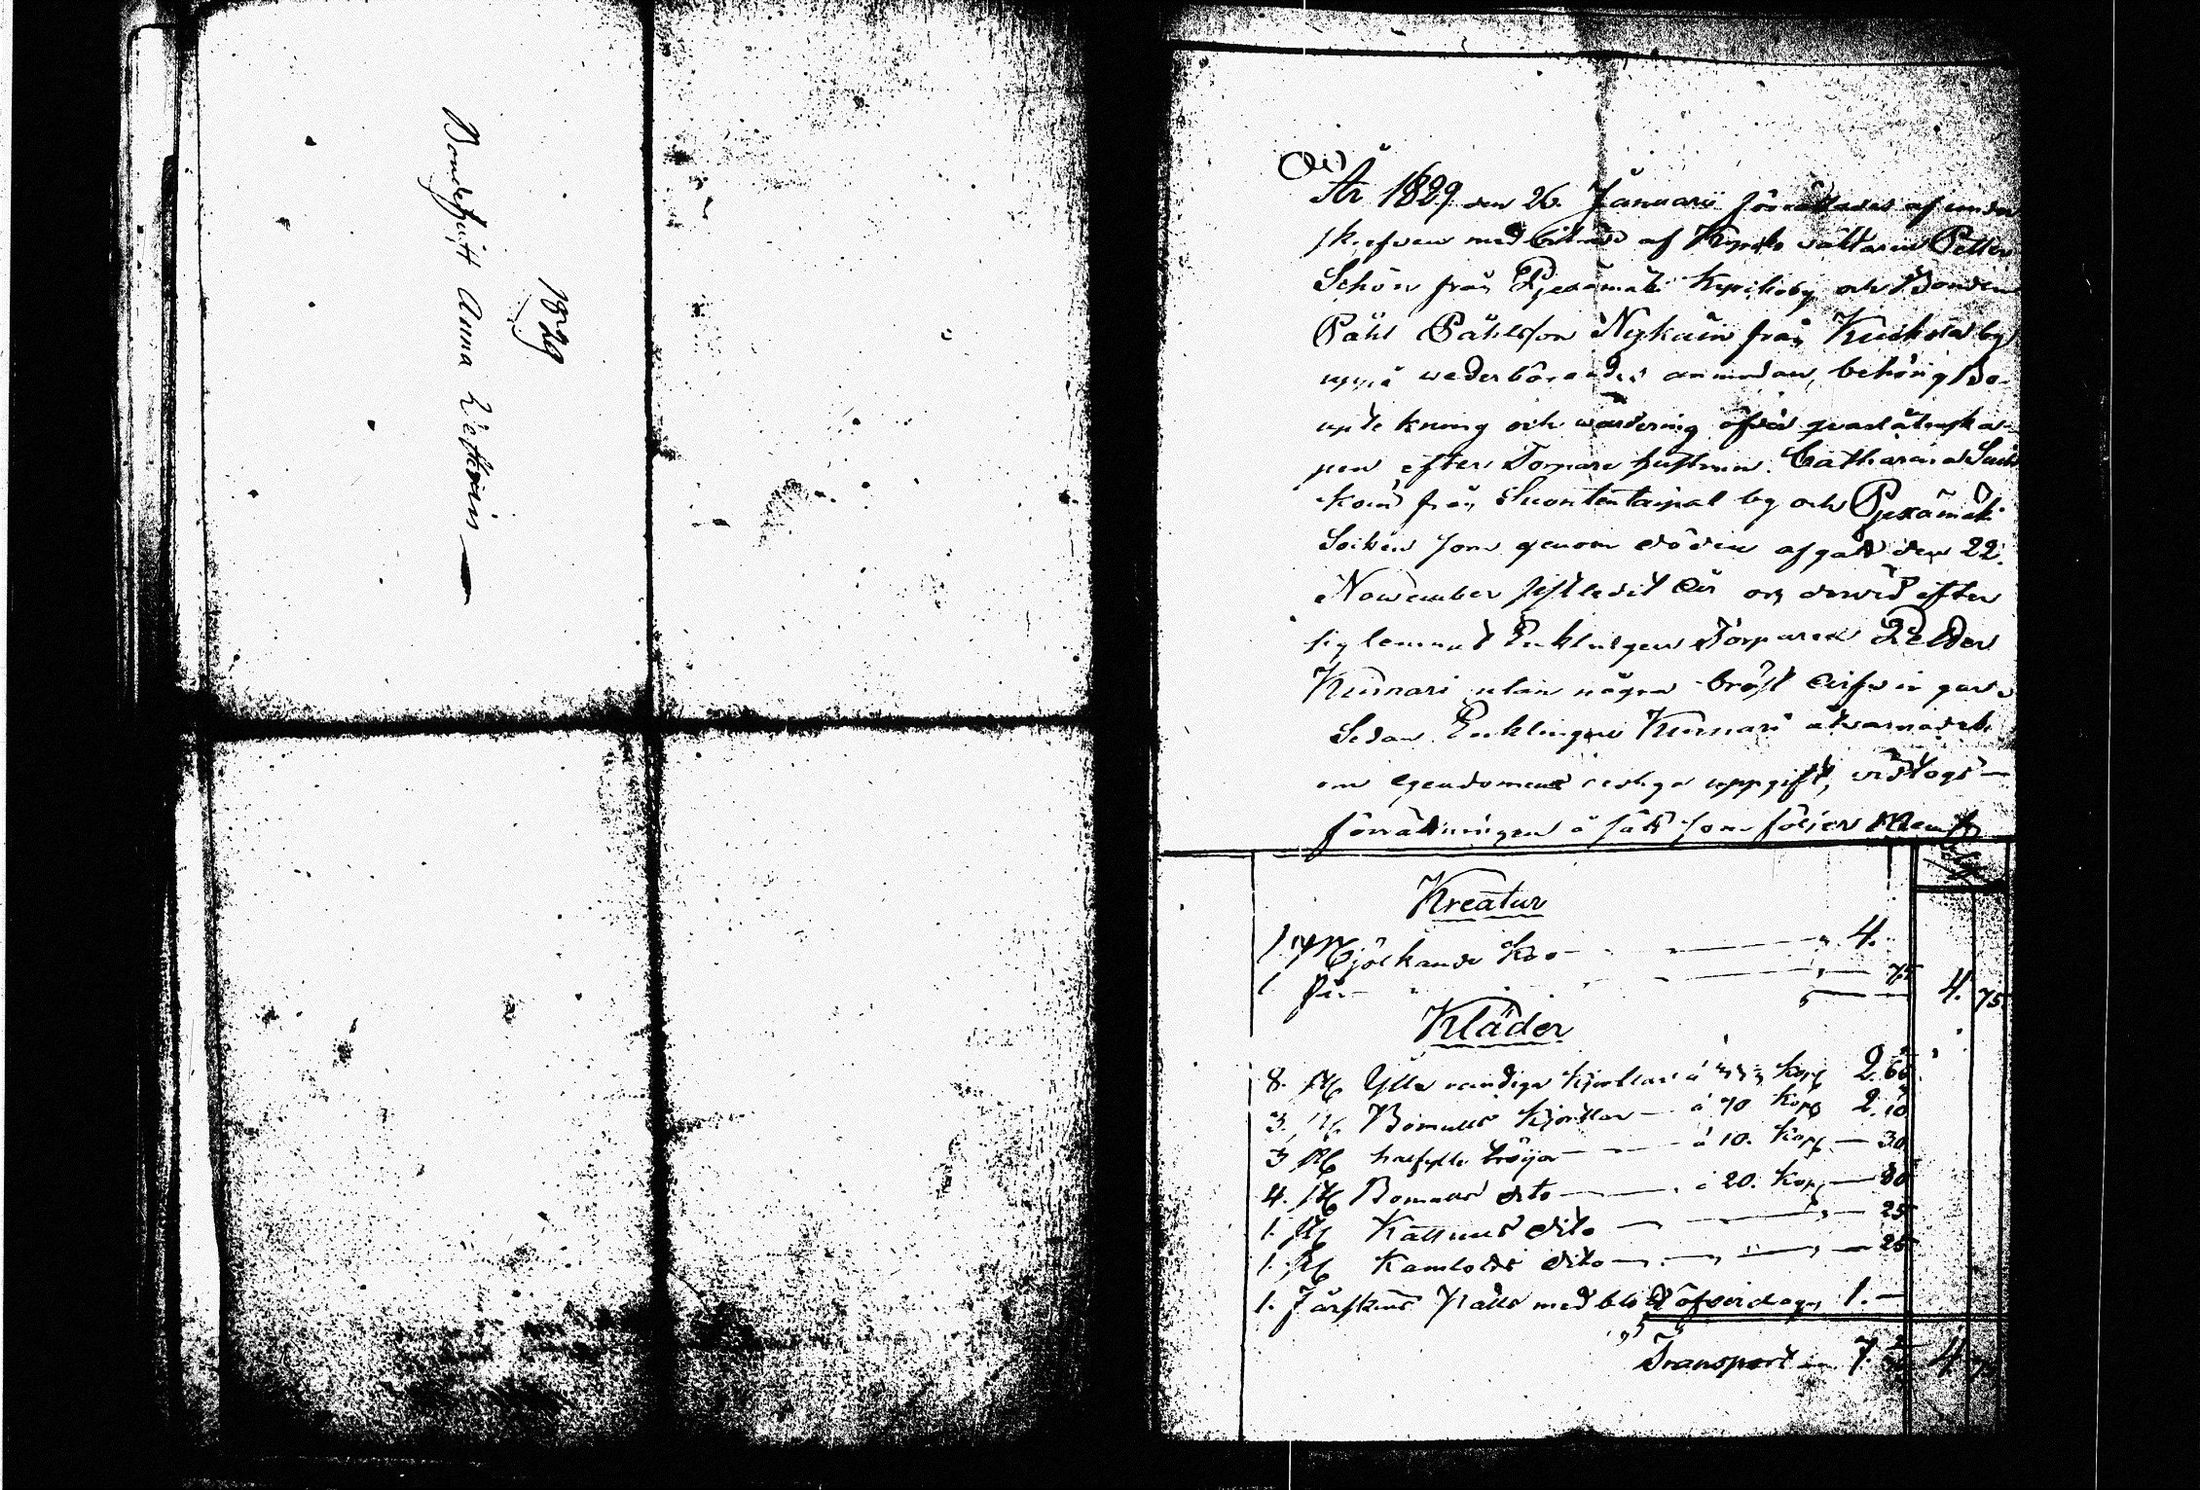 1829
Bondehust: Anna
År 1829 den 26 Januarii förrättades af under
skrefven med biträde af Kyrko väktaren Petter
Schön från Pjexämäki Kyrikoby och Bonden
Påhl Påhlsson Nykäin från by
uppå wederbörandes anmodan, behörig Bo-
upte kning och wärdering öfver qvarlåtenska-
pen efter Torpare hustrun Catharina
från Suontentaipal by och Pjexämäki
Socken som genom döden afgått den 22.
November sistledit år och derwid efter
sig lemnat Enklingen Torparen Petter
Kinnari utan några bröst arfwingar.
Sedan Enklingen Kinnari åtwarnadts
om egendomens redliga uppgift, vidtogs
förrättningen å sätt som följer
Kreatur
1. st Mjölkande Ko — 4.
1 Får — 75 4. 75
Kläder
8. st Ylle randiga Kjortlar à Kop 2.
3. st Bomulls Kjortlar — à 70 Kop 2. 10
3 st halfylle tröijor — à 10. Kop — 30
4. st Bomulls dito — à 20. Kop — 80
1. st Kattuns dito — 25
1. st Kamlotts dito — 25
1. Fårskins med blå öfverdrag 1. —
Transport 7. 4